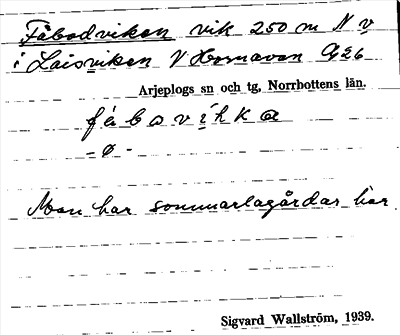 Fäbodviken vik 250 m N v
i Laisviken V Hornavan Q26
Arjeplogs sn och tg, Norrbottens län.
fä́bɷvìkɷ
- ø -
Man har sommarlagårdar här
Sigvard Wallström, 1939.